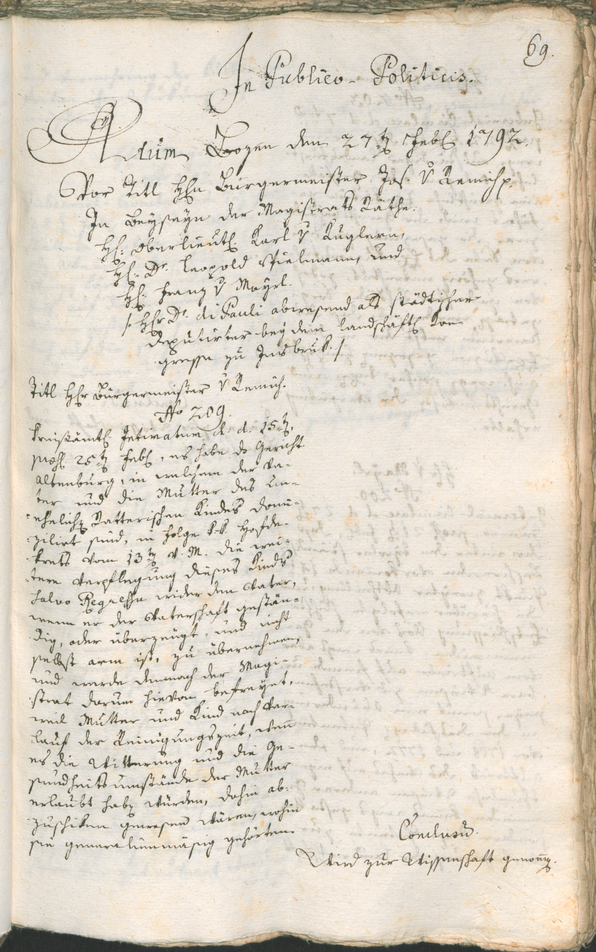 69.
In Publico-Politicis.
Actum Bozen den 27t Febr 1792.
Vor Titl Hhn Bürgermeister Jos. v Remich
In Beyseyn der Magistrats Räthe.
Hh: Oberlieutt Karl v Kuglern,
Hh: Dr. Leopold Spielmann, und
Hh: Franz v Mayrl.
/: Hhr Dr. di Pauli abwesend als städtischer
Deputirter bey dem landschäftl Kon-
gresse zu Insbruk. :/
Titl Hhr Bürgermeister v Remich.
No 209.
Kreisämtl Intimatum d. d. 15t,
25t Febr, es habe das Gericht
Altenburg, in welchem der Va-
ter und die Mutter des
ehelich Kindes domi-
zilirt sind, in Folge Hofde-
krets vom 13t v. M. die wei-
tere Verpflegung dieses Kinds
salvo Regressu wider den Vater,
wenn er der Vaterschaft gestän-
dig, oder überzeugt, und nicht
selbst arm ist, zu übernehmen,
und werde demnach der Magi-
strat darum hievon befreyet,
weil Mutter und Kind nach Ver-
lauf der Reinigungszeit, wenn
es die Witterung und die Ge-
sundheitsumstände der Mutter
erlaubt hab würden, dahin ab-
zuschiken gewesen wären, wohin
sie generalienmäsig gehörten.
Conclusum.
Wird zur Wissenschaft genom̄.